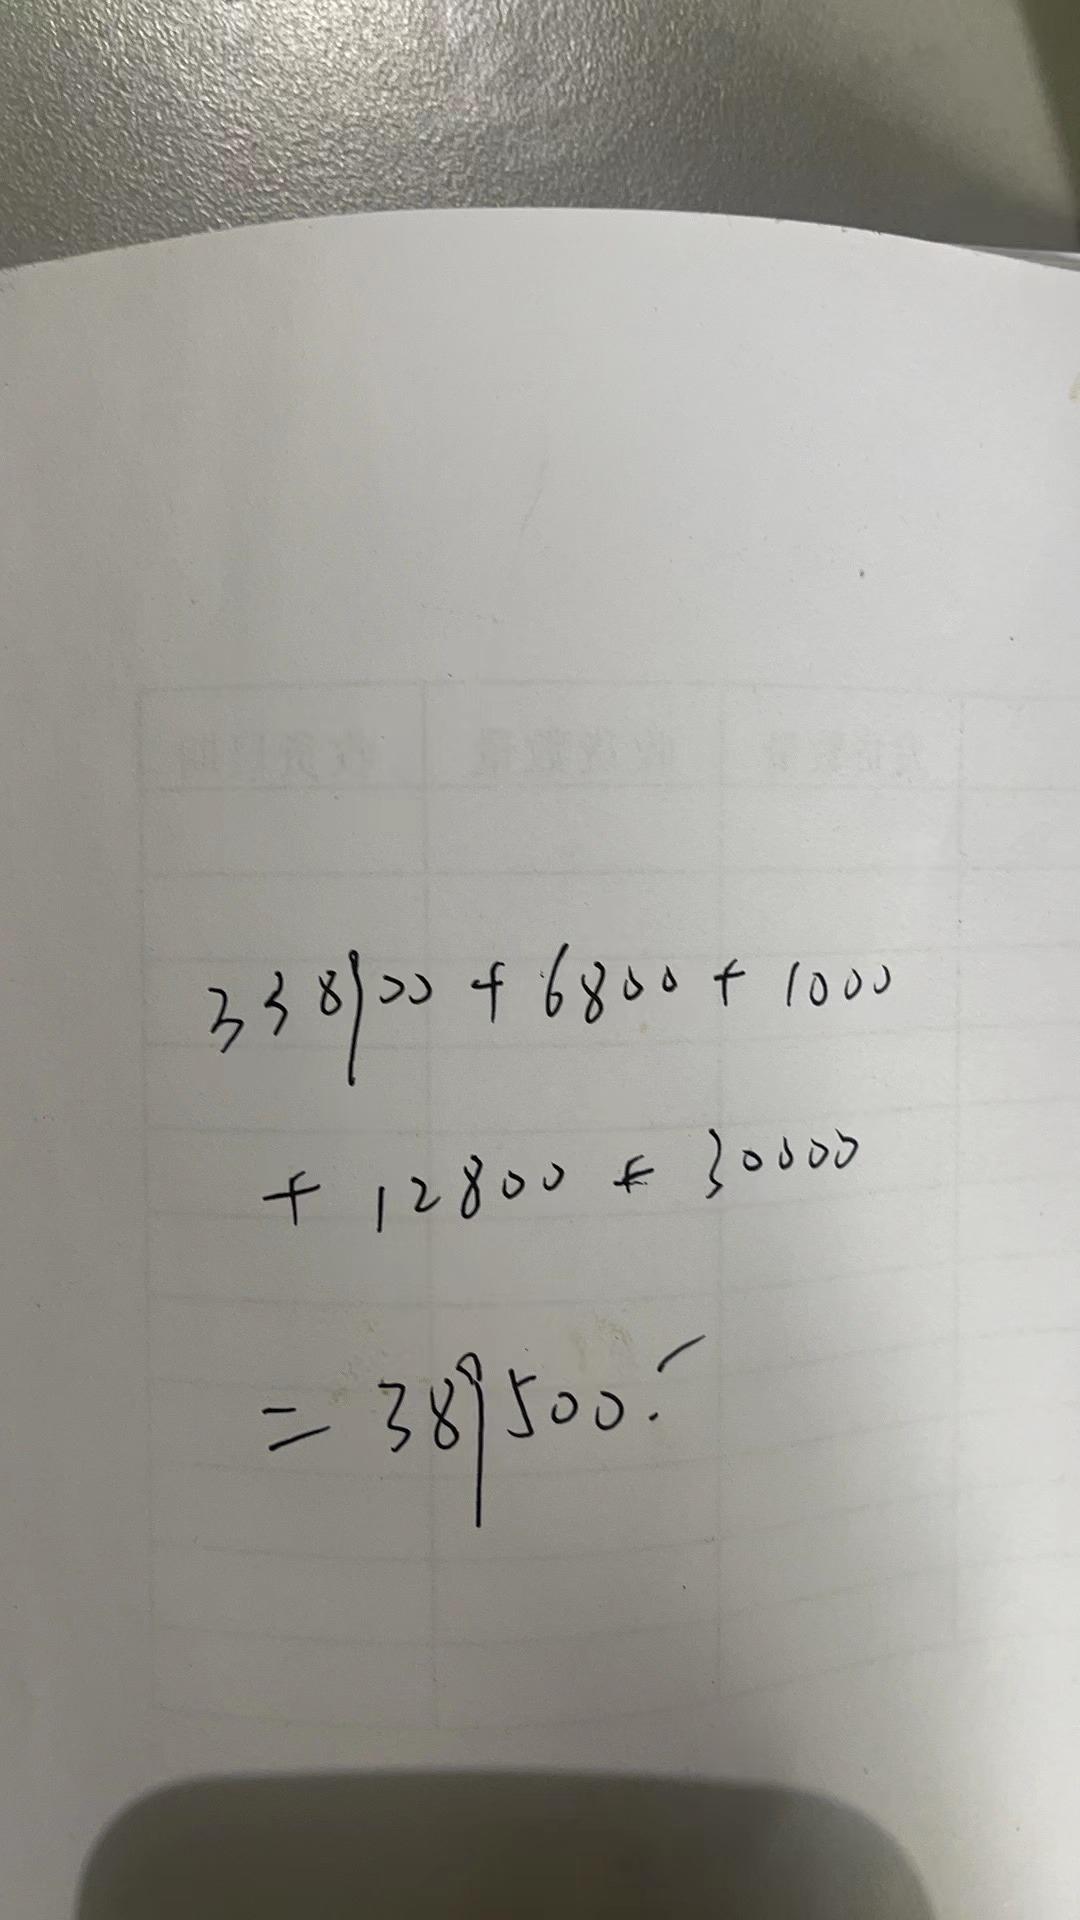 338900 + 6800 + 1000
+ 12800 + 30000
= 389500.